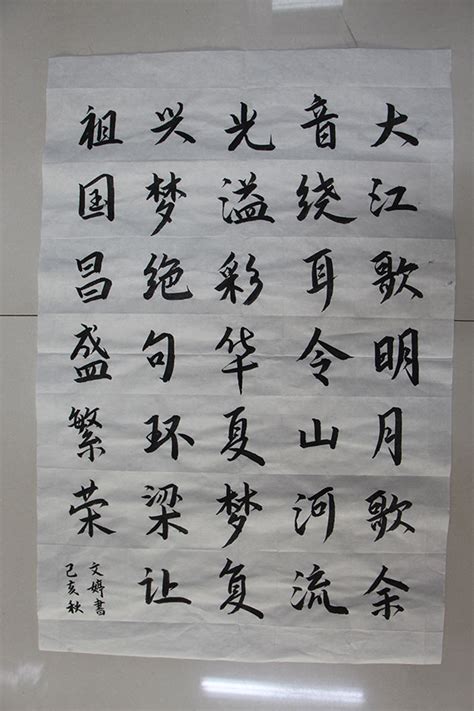 大江歌明月歌余
音绕耳令山河流
光溢彩华夏梦复
兴梦绝句环梁让
祖国昌盛繁荣
文婷書
己亥秋